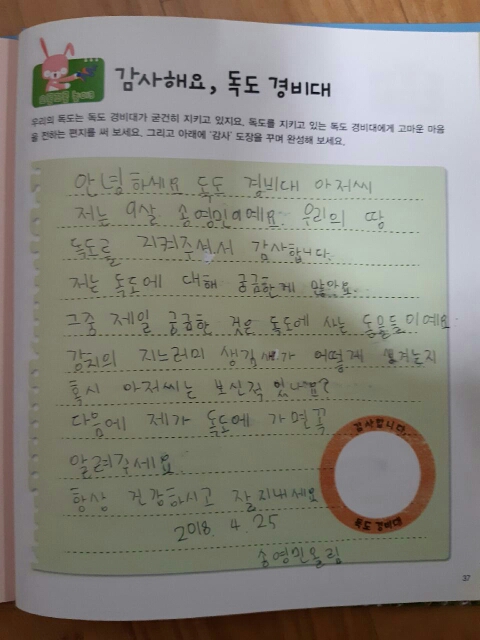 감사해요, 독도 경비대
우리의 독도는 독도 경비대가 굳건히 지키고 있지요. 독도를 지키고 있는 독도 경비대에게 고마운 마음
을 전하는 편지를 써 보세요. 그리고 아래에 '감사' 도장을 꾸며 완성해 보세요.
안녕하세요 독도 경비대 아저씨
저는 9살 송영민이예요. 우리의 땅
독도를 지켜주셔서 감사합니다.
저는 독도에 대해 궁금한게 많아요.
그중 제일 궁금한 것은 독도에 사는 동물들이예요
강치의 지느러미 생김새가 어떻게 생겼는지
혹시 아저씨는 보신적 있나요?
다음에 제가 독도에 가면꼭
알려주세요.
항상 건강하시고 잘지내세요
2018. 4. 25
송영민올림
감사합니다.
독도 경비대
37